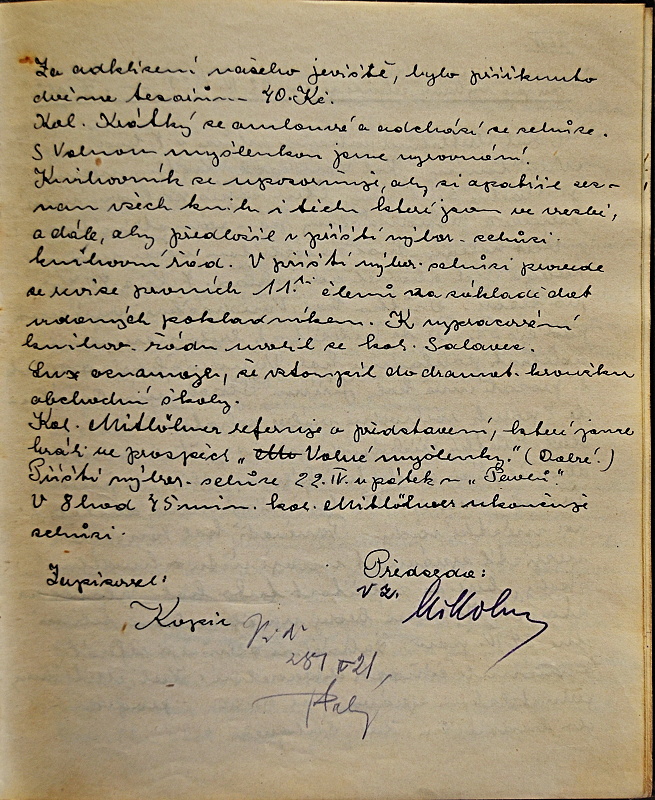 Za odklizení našeho jeviště, bylo přiřknuto
dvěma tesařům 40.Kč.
Kol. Krátký se omlouvá a odchází se schůze.
S Volnou myšlenkou jsme vyrovnáni.
Knihovník se upozorňuje, aby si opatřil sez-
nam všech knih i těch které jsou ve vazbě,
a dále, aby předložil v příští výbor. schůzi
knihovní řád. V příští výbor. schůzi provede
se revise prvních 11ti členů na základě dat
udaných pokladníkem. K vypracování
knihov. řádu uvolil se kol. Salavec.
Lux oznamuje, že vstoupil do dramat. kroužku
obchodní školy.
Kol. Mittöhner referuje o představení, které jsme
hráli ve prospěch „Volné myšlenky." (Dobré!)
Příští výbor. schůze 22.IV. v pátek u „Pavců".
V 8 hod 45 min. kol. Mittöhner ukončuje
schůzi.
Zapisovatel:
Předseda:
v z.
Kopic